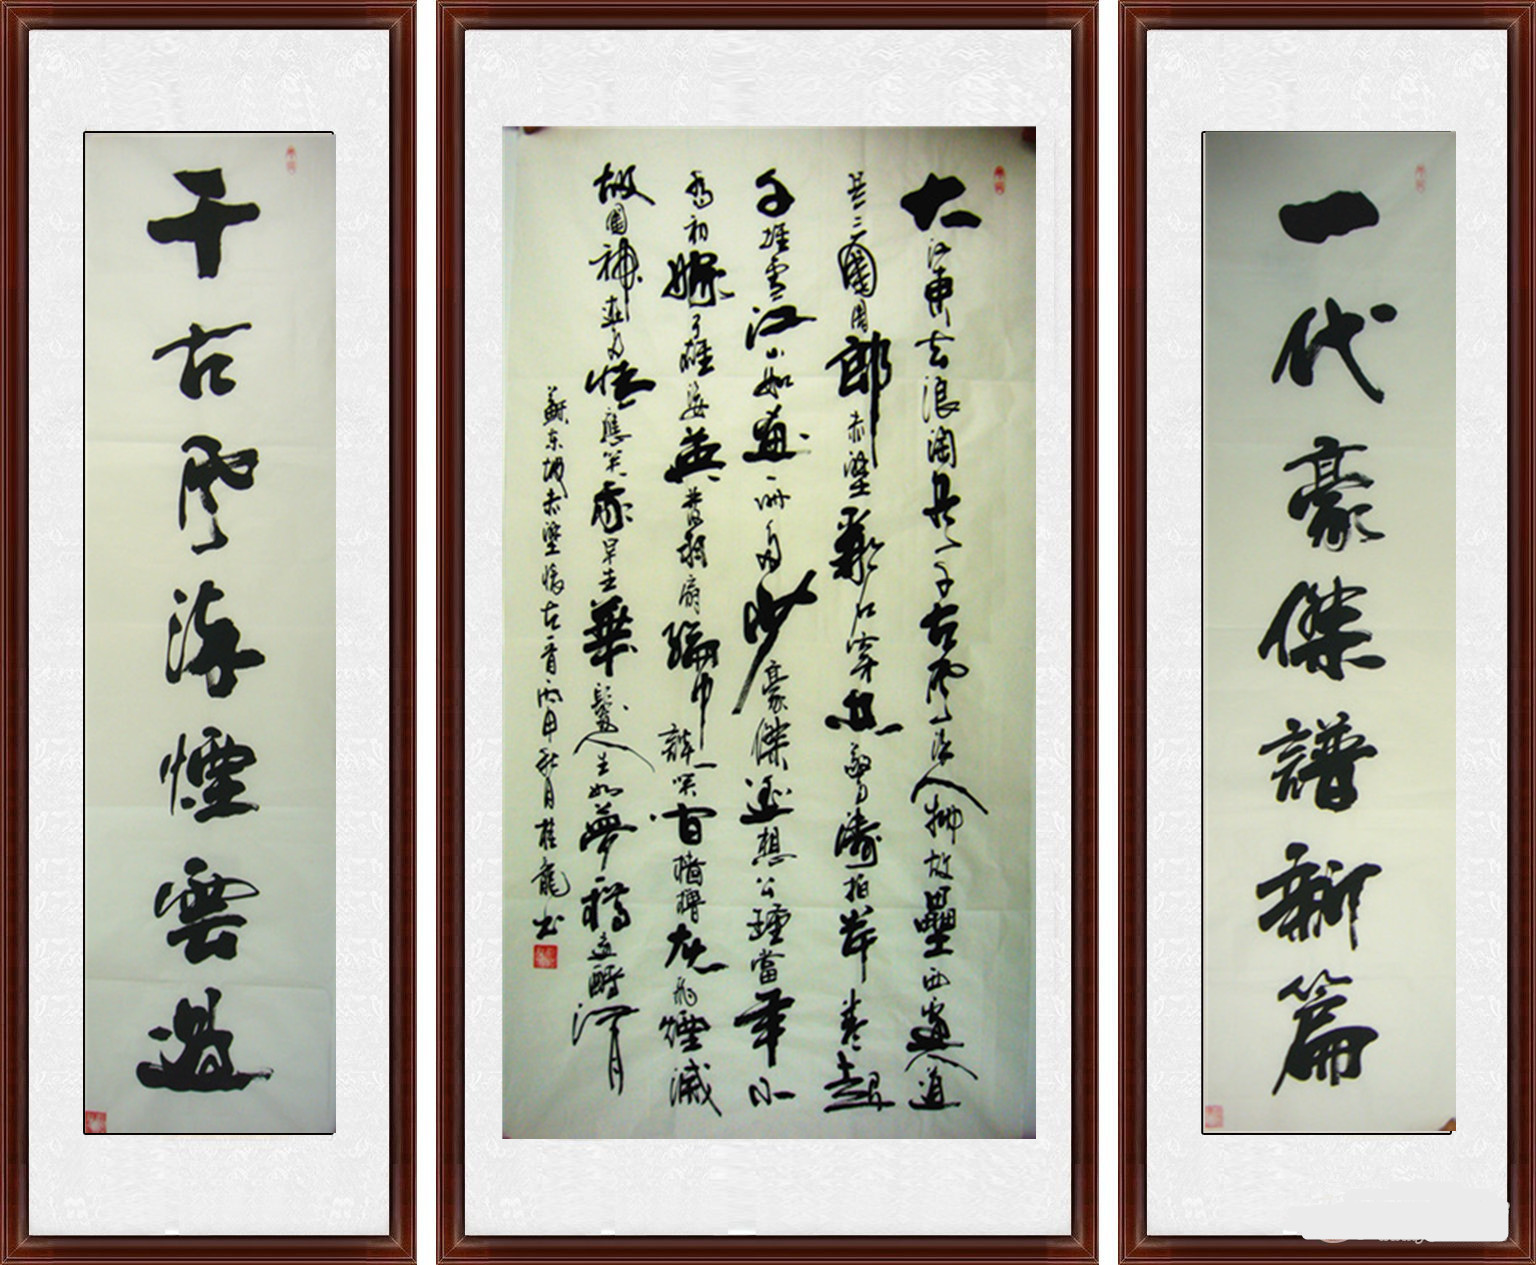 一代豪傑譜新篇
大江東去浪淘尽千古风流人物故壘西邊人道
是三國周郎赤壁亂石穿空驚濤拍岸卷起
千堆雪江山如畫一時多少豪傑遙想公瑾當年小
喬初嫁了雄姿英發羽扇綸巾談笑間檣櫓灰飛煙滅
故國神遊多情應笑我早生華髮人生如夢一樽還酹江月
蘇东坡赤壁懷古一首丙申秋月桂龍书
千古风流煙雲過